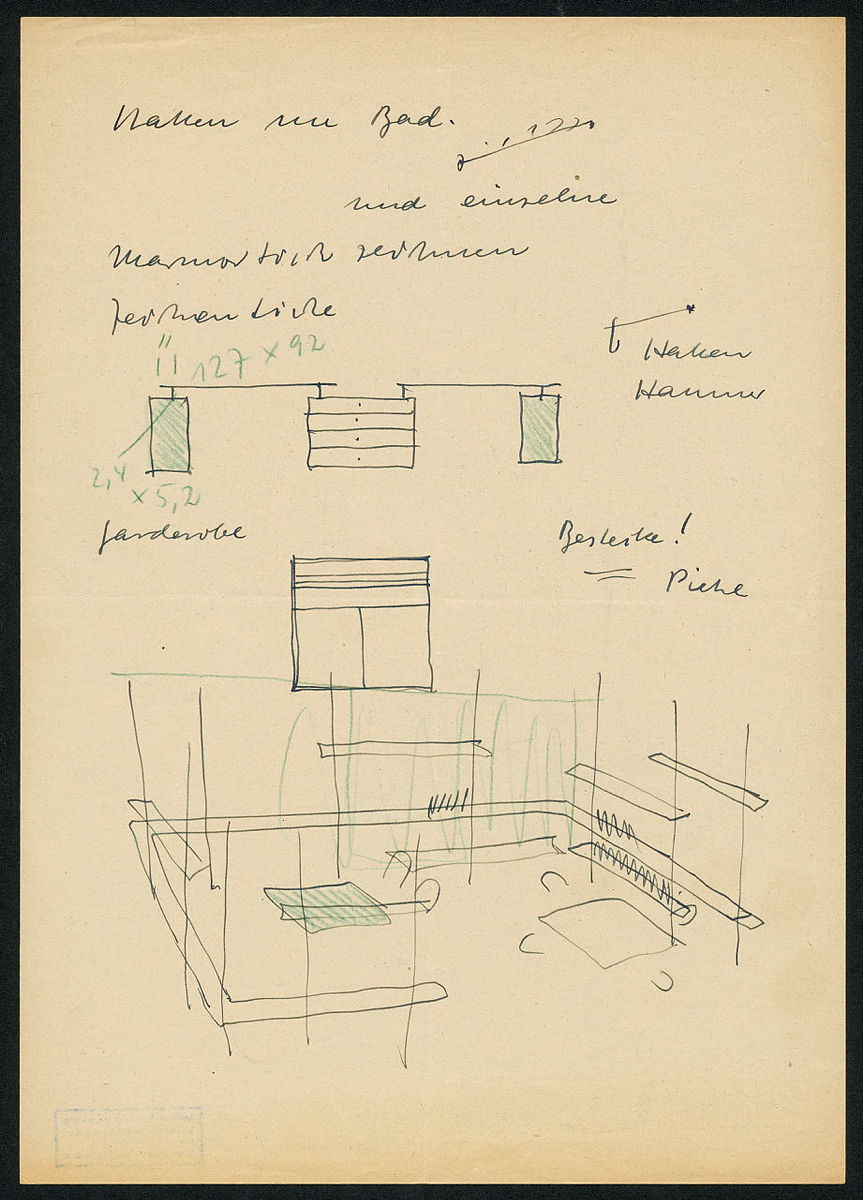 Haken im Bad.
und einzelne
Marmortisch zeichnen
Zeichentische
127 x 92
Haken
Hammer
2,4
x 5,2
Garderobe
Bestecke!